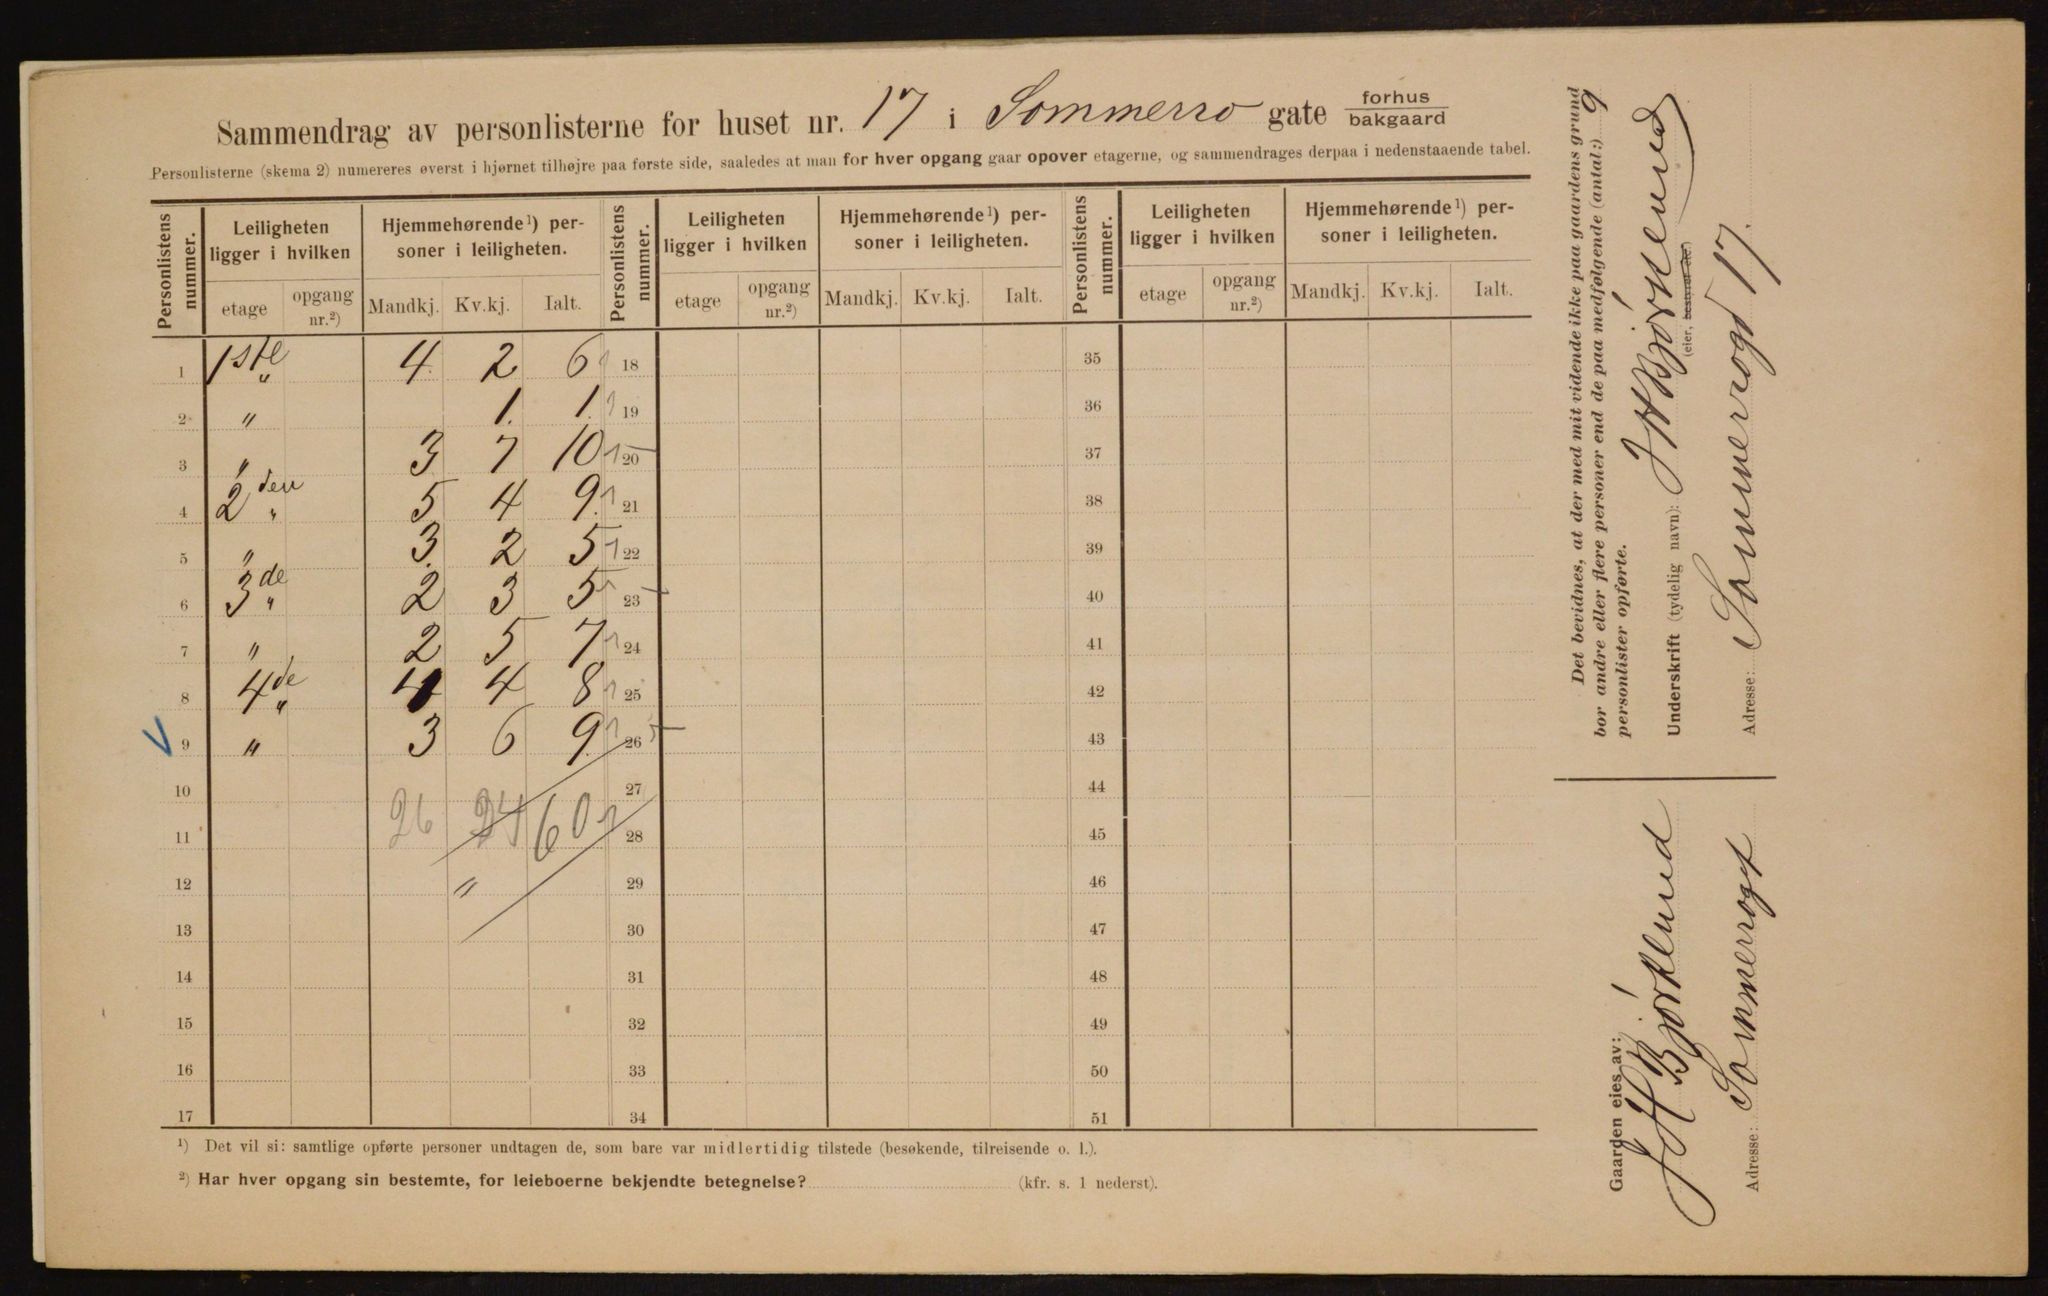 Sammendrag av personlisterne for huset nr. 17 i Sommerro gate forhus
bakgaard
Personlisterne (skema 2) numereres øverst i hjørnet tilhøjre paa første side, saaledes at man for hver opgang gaar opover etagerne, og sammendrages derpaa i nedenstaaende tabel.
Personlistens nummer. Leiligheten ligger i hvilken Hjemmehørende¹) personer i leiligheten. Personlistens nummer. Leiligheten ligger i hvilken Hjemmehørende¹) personer i leiligheten. Personlistens nummer. Leiligheten ligger i hvilken Hjemmehørende¹) personer i leiligheten.
etage opgang nr.²) Mandkj. Kv.kj. Ialt. etage opgang nr.²) Mandkj. Kv.kj. Ialt. etage opgang nr.²) Mandkj. Kv.kj. Ialt.
1 1ste " 4 2 6 18 35
2 " 1. 1. 19 36
3 " 3 7 10 20 37
4 2den " 5 4 9. 21 38
5 " 3. 2 5 22 39
6 3de " 2 3 5 23 40
7 " 2 5 7 24 41
8 4de " 4 4 8 25 42
9 " 3 6 9. 26 43
10 27 44
11 26 34 60 28 45
12 " 29 46
13 30 47
14 31 48
15 32 49
16 33 50
17 34 51
¹) Det vil si: samtlige opførte personer undtagen de, som bare var midlertidig tilstede (besøkende, tilreisende o. l.).
²) Har hver opgang sin bestemte, for leieboerne bekjendte betegnelse? (kfr. s. 1 nederst).
Det bevidnes, at der med mit vidende ikke paa gaardens grund
bor andre eller flere personer end de paa medfølgende (antal:) 9
personlister opførte.
Underskrift (tydelig navn): J H Bjørklund
(eier, bestyrer etc.)
Adresse: Sommerrogt 17.
Gaarden eies av:
J H Bjørklund
Adresse: Sommerrogt